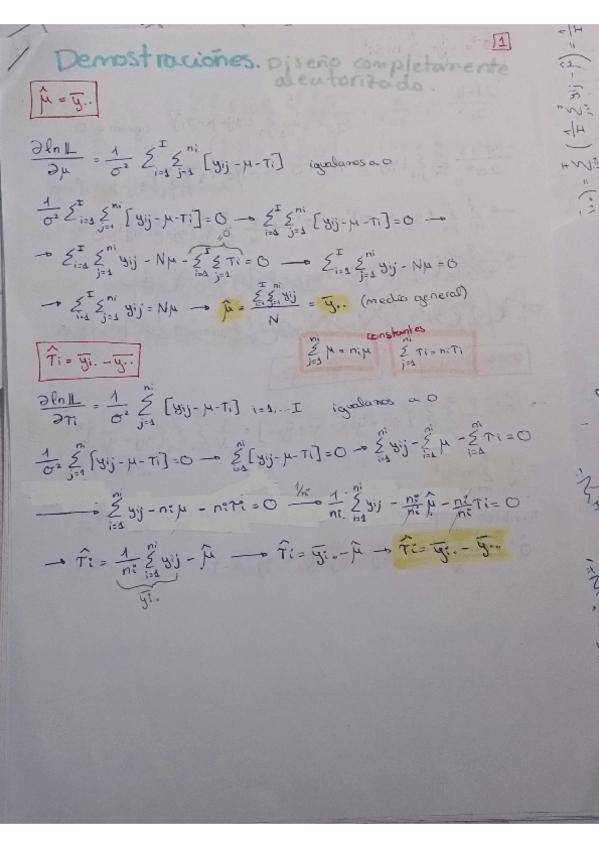 1
Demostraciónes. Diseño completamente
aleatorizado.
μ̂ = ȳ..
∂ln L/∂μ = 1/σ² Σ_{i=1}^{I} Σ_{j=1}^{ni} [yij-μ-τi] igualamos a 0
1/σ² Σ_{i=1}^{I} Σ_{j=1}^{ni} [yij-μ-τi]=0 → Σ_{i=1}^{I} Σ_{j=1}^{ni} [yij-μ-τi]=0 →
→ Σ_{i=1}^{I} Σ_{j=1}^{ni} yij - Nμ - Σ_{i=1}^{I} Σ_{j=1} τi = 0 → Σ_{i=1}^{I} Σ_{j=1}^{ni} yij - Nμ = 0
→ Σ_{i=1}^{I} Σ_{j=1}^{ni} yij = Nμ → μ̂ = Σ_{i=1}^{I} Σ_{j=1}^{ni} yij / N = ȳ.. (media general)
constantes
Σ_{j=1}^{ni} μ = ni μ Σ_{j=1}^{ni} τi = ni τi
τ̂i = ȳi. - ȳ..
∂ln L/∂τi = 1/σ² Σ_{j=1}^{ni} [yij-μ-τi] i=1,...I igualamos a 0
1/σ² Σ_{j=1}^{ni} [yij-μ-τi]=0 → Σ_{i=1}^{ni} [yij-μ-τi]=0 → Σ_{i=1}^{ni} yij - Σ_{i=1}^{ni} μ - Σ_{i=1}^{ni} τi = 0
→ Σ_{i=1}^{ni} yij - ni μ - ni τi = 0 1/ni → 1/ni Σ_{i=1}^{ni} yij - ni/ni μ̂ - ni/ni τi = 0
→ τ̂i = 1/ni Σ_{i=1}^{ni} yij - μ̂ → τ̂i = ȳi. - μ̂ → τ̂i = ȳi. - ȳ..
ȳi.